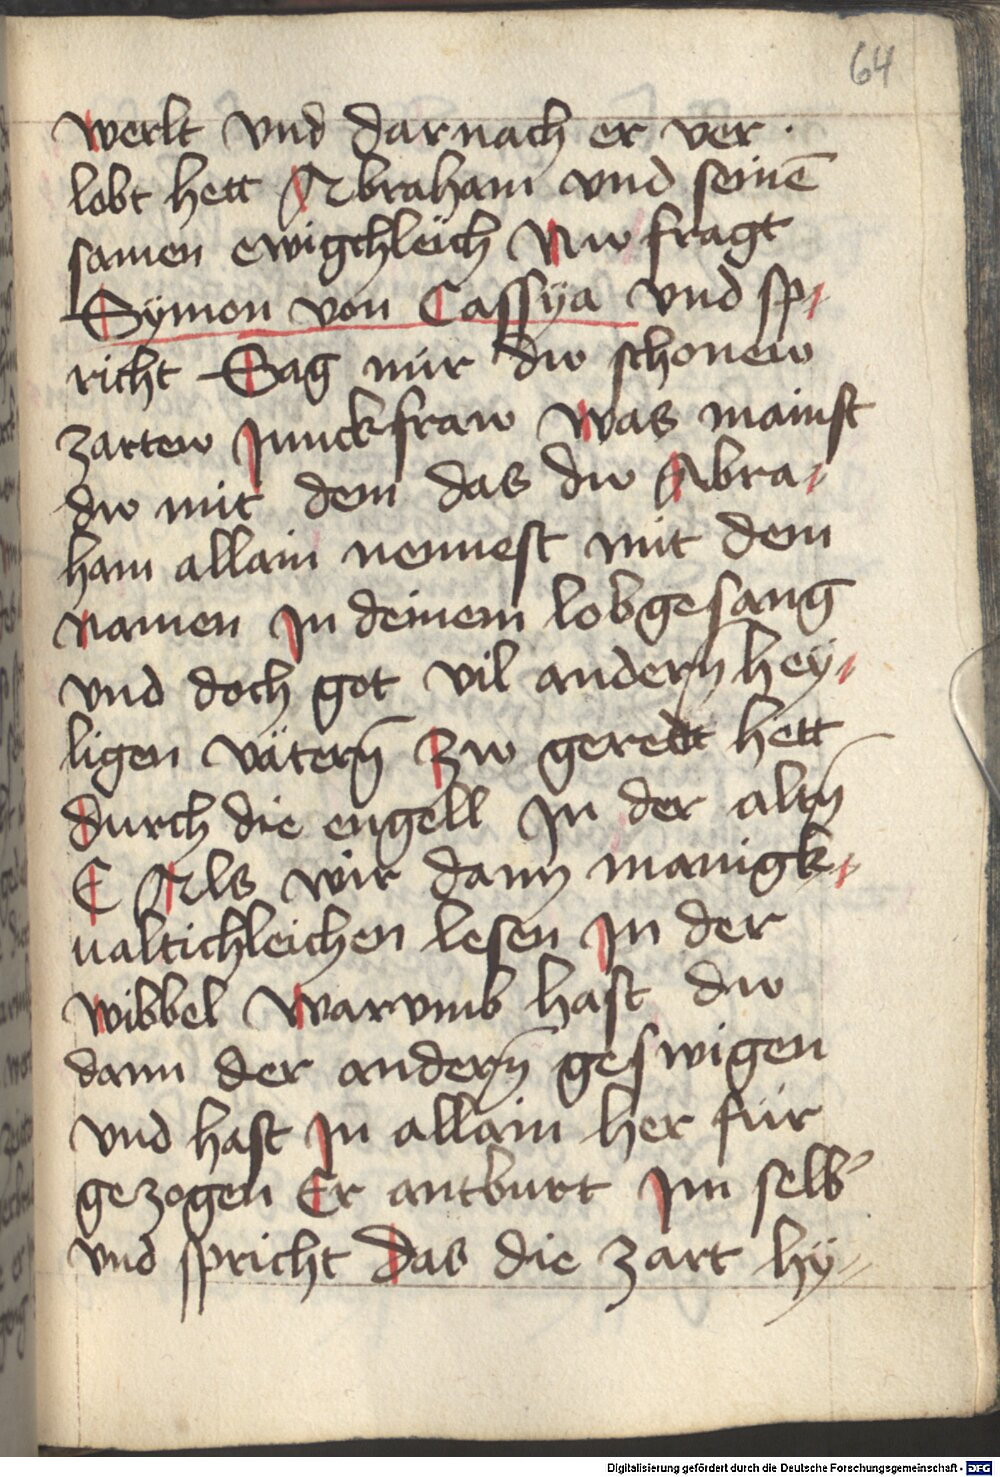 64
werlt vnd darnach er ver ·
lobt hett Abraham vnd seinē
samen ewigchleich Nw fragt
Sÿmon von Cassÿa vnd sp-
richt Sag mir dw schonew
zartew Junckfraw Was mainst
dw mit dem das dw Abra-
ham allain nennest mit dem
namen Jn deinem lobgesang
vnd doch got vil andern heÿ-
ligen vätern̄ Zw geredt hett
durch die engell Jn der altn̄
E Als wir dann manigk-
ualtichleichen lesen Jn der
wibbel Warvmb hast dw
dann der andern̄ geswigen
vnd hast Jn allain her für
gezogen Er antburt Jm selb'
vnd spricht Das die zart hÿ-
Digitalisierung gefördert durch die Deutsche Forschungsgemeinschaft - DFG